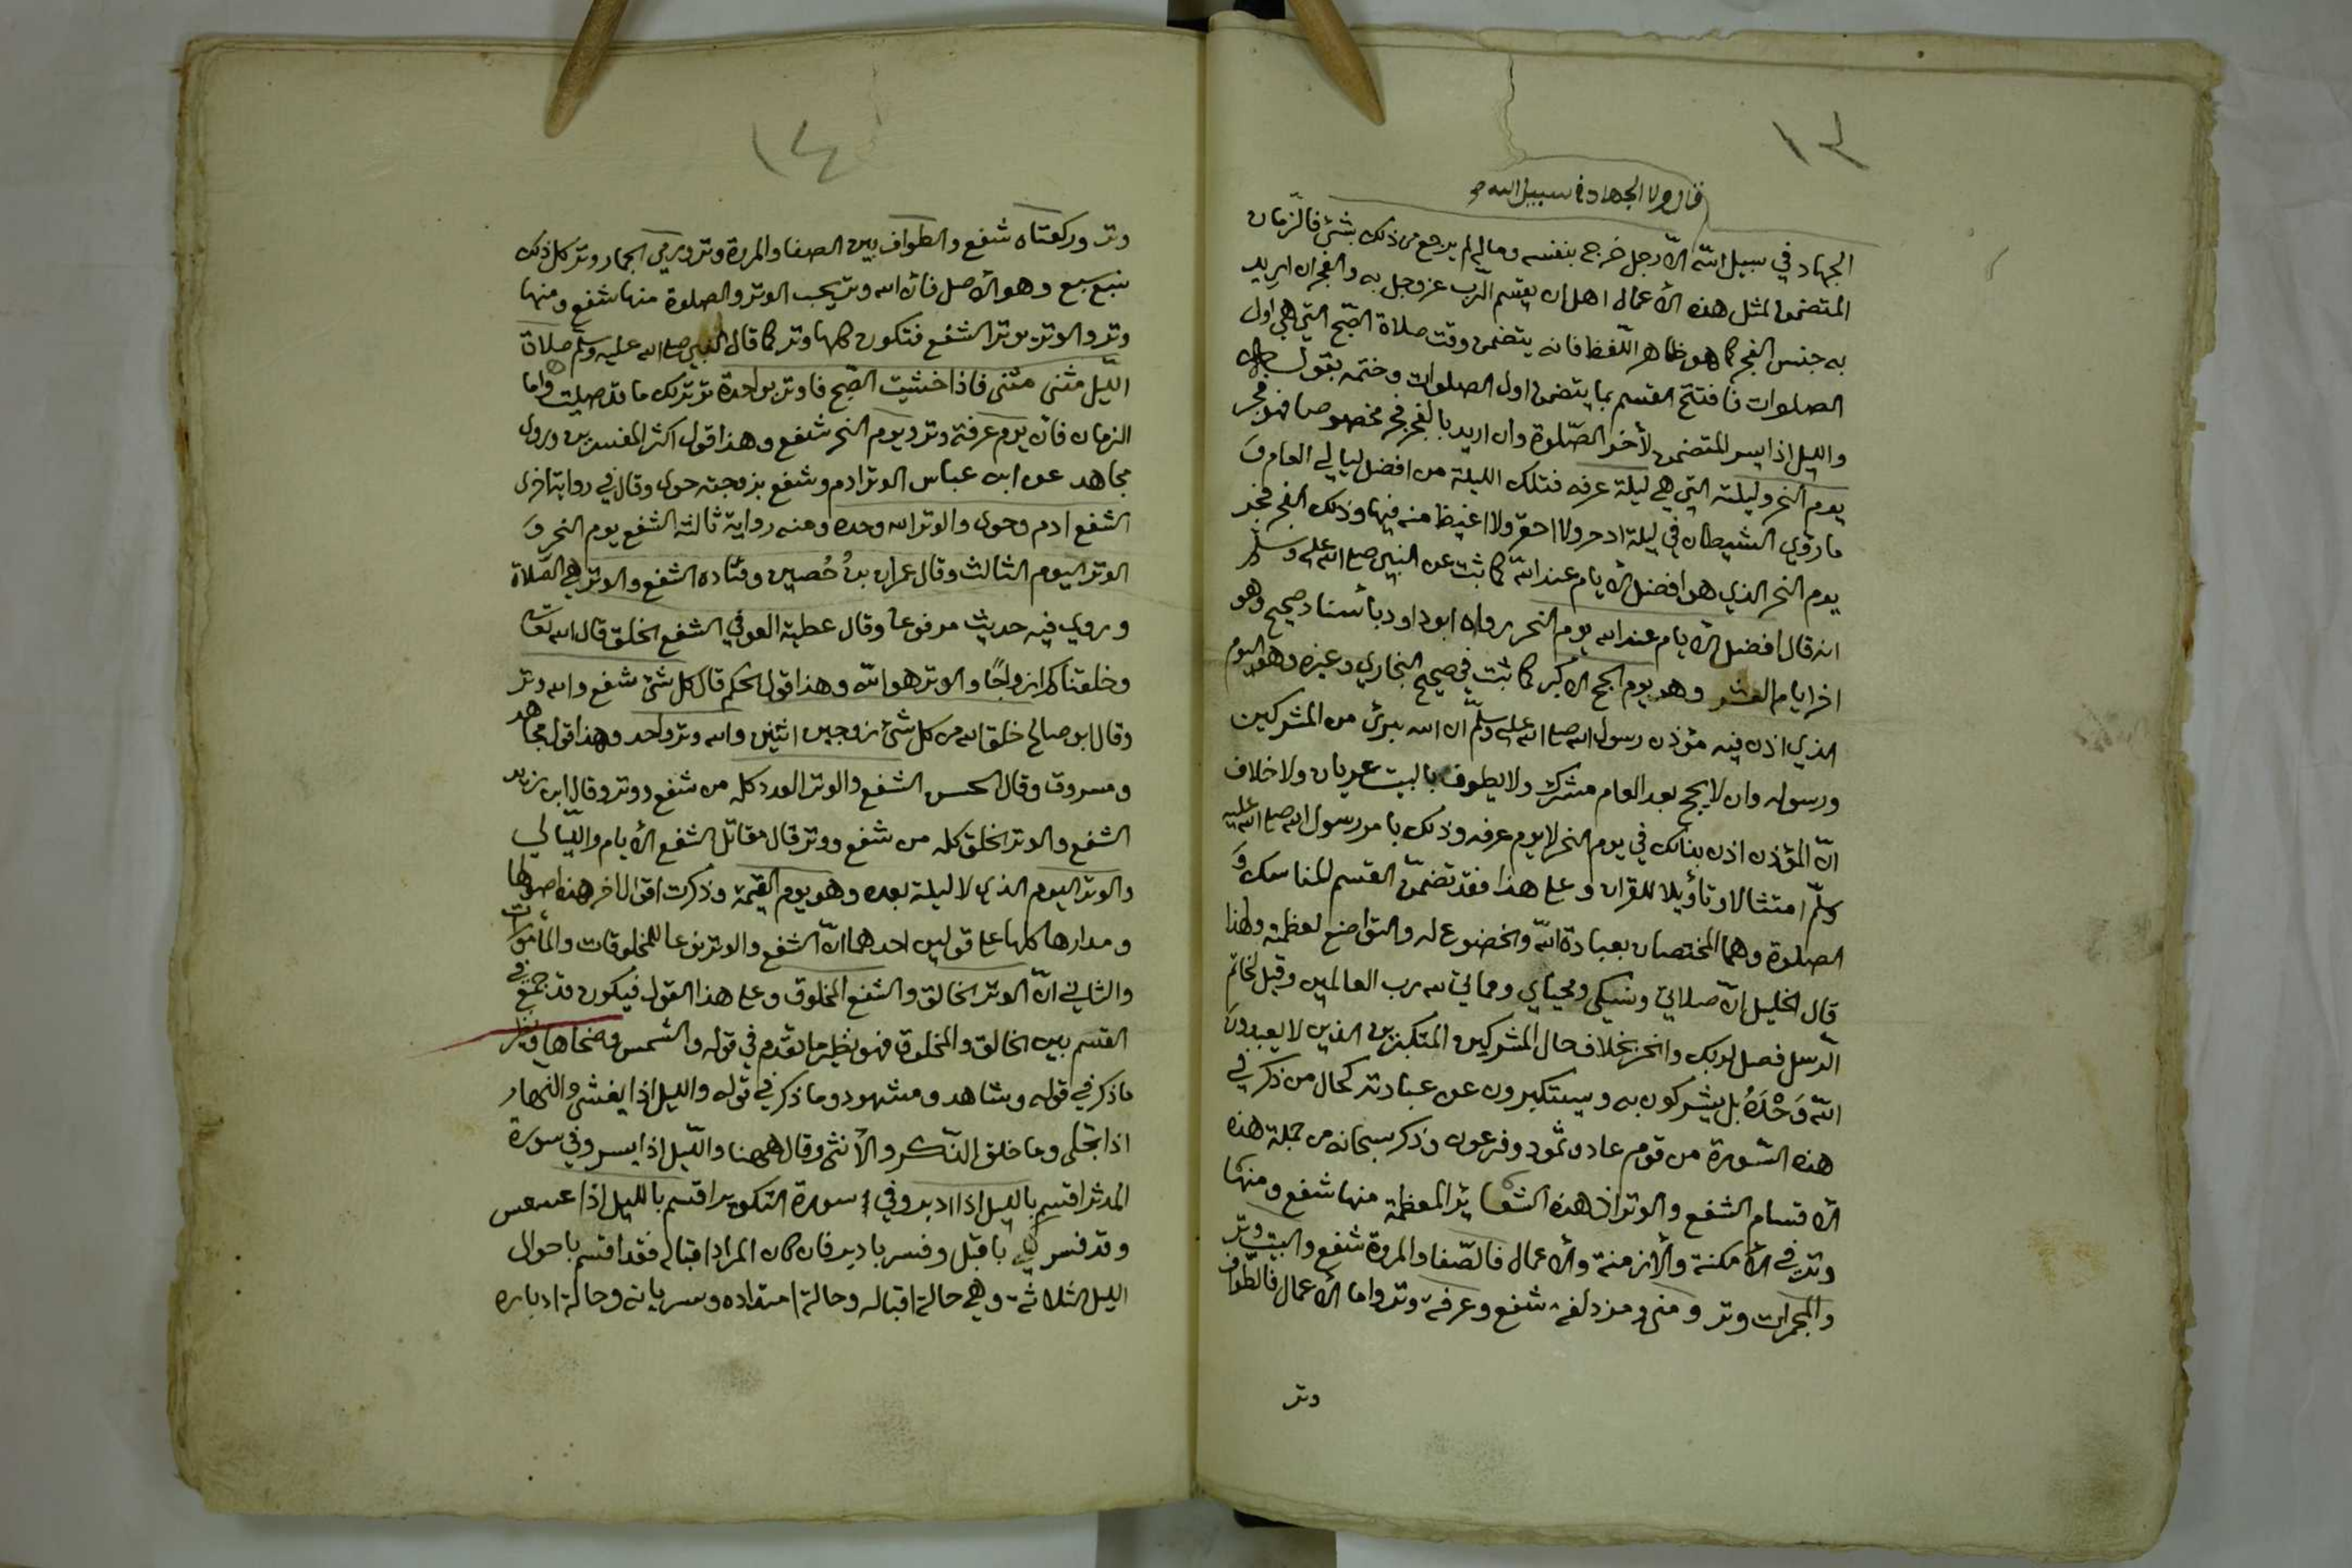 ١٣
قال ولا الجهاد في سبيل الله
الجهاد في سبيل الله الّا رجل خرج بنفسه وماله لم يرجع من ذلك بشئ فالزمان
المتضمن لمثل هذه الأعمال اهل ان يقسم الرّب عز وجل به والفجر ان اريد
به جنس الفجر كما هو ظاهر اللّفظ فانه يتضمن وقت صلاة الصّبح التي هي اول
الصلوات فافتتح القسم بما يتضمن اول الصلوات وختمه بقوله
والليل اذا يسر المتضمن لأخر الصّلوة وان اريد بالفجر فجر مخصوصا فهو فجر
يوم النحر وليلته التي هي ليلة عرفه فتلك الليلة من افضل ليالي العام وَ
ما رؤي الشيطان في ليلة ادحر ولا احقر ولا اغيظ منه فيها وذلك الفجر فجر
يوم النحر الذي هو افضل الأيام عند الله كما ثبت عن النبي صلى الله عليه وسلم
انه قال افضل الأيام عند الله يوم النحر رواه ابو داود بأسناد صحيح وهو
اخر ايام العشر وهو يوم الحج الأكبر كما ثبت في صحيح البخاري وغيره وهو اليوم
الذي اذن فيه مؤذن رسول الله صلى الله عليه وسلّم ان الله برئ من المشركين
ورسوله وان لا يحج بعد العام مشرك ولا يطوف بالبيت عريان ولا خلاف
انّ المؤذن اذن بذلك في يوم النحر لا يوم عرفه وذلك بامر رسول الله صلى الله عليه
وسلّم امتثالا وتأويلا للقران وعلى هذا فقد تضمّن القسم للمناسك وَ
الصلوة وهما المختصان بعبادة الله والخضوع له والتواضع لعظمته ولهذا
قال الخليل انّ صلاتي ونسكي ومحياي ومماتي لله رب العالمين وقيل لخاتم
الرّسل فصل لربك وانحر بخلاف حال المشركين المتكبرين الذين لا يعبدون
الله وَحْدَهُ بل يشركون به ويستكبرون عن عبادته كحال من ذكر في
هذه السّورة من قوم عاد وثمود وفرعون وذكر سبحانه من جملة هذه
الأقسام الشفع والوتر اذ هذه الشعاير المعظمة منها شفع ومنها
وتر في الأمكنة والأزمنة والأعمال فالصّفا والمروة شفع والبيت وتر
والجمرات وتر ومنى ومزدلفه شفع وعرفة وتر واما الأعمال فالطّواف
وتر
١٤
وتر وركعتاه شفع والطواف بين الصفا والمروة وتر ورمي الجمار وتر كل ذلك
سبع سبع وهو الأصل فأن الله وتر يحب الوتر والصلوة منها شفع ومنها
وتر والوتر يوتر الشفع فتكون كلها وتر كما قال النبي صلى الله عليه وسلّم صلاة
الليّل مثنى مثنى فاذا خشيت الصّبح فاوتر بواحدة توتر لك ما قد صليت واما
الزمان فان يوم عرفة وتر ويوم النحر شفع وهذا قول اكثر المفسرين وروى
مجاهد عن ابن عباس الوتر ادم وشفع بزوجته حوى وقال في رواية اخرى
الشفع ادم وحوى والوتر الله وحده وعنه رواية ثالثة الشفع يوم النحر وَ
الوتر اليوم الثالث وقال عمران بنُ حُصين وقتاده الشفع والوتر هي الصّلاة
وروي فيه حديث مرفوعا وقال عطية العوفي الشفع الخلق قال الله تعالى
وخلقناكم ازواجًا والوتر هو الله وهذا قول الحكم قال كل شئ شفع والله وتر
وقال ابو صالح خلق الله من كل شئ زوجين اثنين والله وتر واحد وهذا قول مجاهد
ومسروق وقال الحسن الشفع والوتر العدد كله من شفع ووتر وقال ابن زيد
الشفع والوتر الخلق كله من شفع ووتر قال مقاتل الشفع الأيام والليّالي
والوتر اليوم الذي لا ليلة بعده وهو يوم القيمة وذكرت اقوال اخر هذه اصولها
ومدارها كلها على قولين احدهما انّ الشفع والوتر نوعا للمخلوقات والمأمورات
والثاني انّ الوتر الخالق والشفع المخلوق وعلى هذا القول فيكون قد جمع في
القسم بين الخالق والمخلوق فهو نظير ما تقدم في قوله والشمس وضحاها ونظير
ما ذكر في قوله وشاهد ومشهود وما ذكر في قوله والليل اذا يغشى والنهار
اذا تجلى وما خلق الذّكر والأنثى وقال ههنا والليّل اذا يسر وفي سورة
المدثر اقسم بالليل اذا ادبر وفي سورة التكوير اقسم بالليل اذا عسعس
وقد فسر باقبل وفسر بادبر فان كان المراد اقباله فقد اقسم باحوال
الليل الثلاثة وهي حالة اقباله وحالة امتداده وسريانه وحالة ادباره